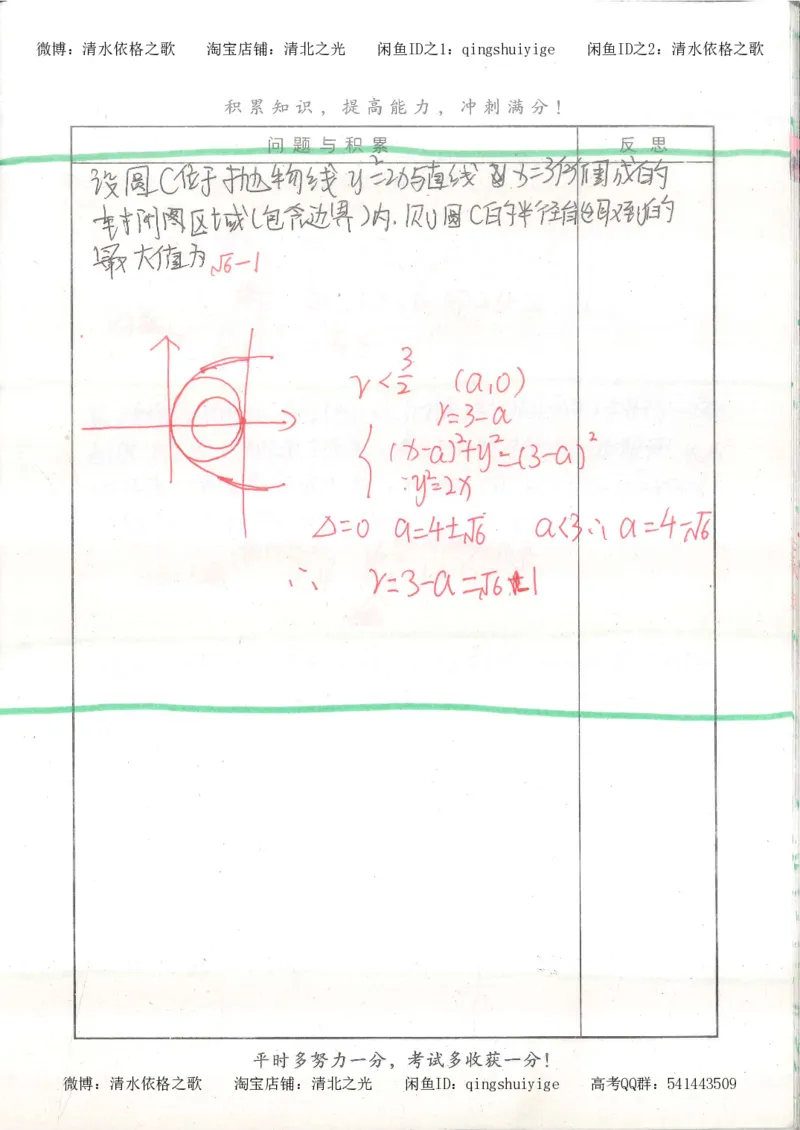 微博：清水依格之歌 淘宝店铺：清北之光 闲鱼ID之1：qingshuiyige 闲鱼ID之2：清水依格之歌
积累知识，提高能力，冲刺满分！
问题与积累 反思
设圆C位于抛物线y²=2x与直线x=3所围成的
封闭图区域(包含边界)内.则圆C的半径能取到的
最大值为√6-1
r<3/2 (a,0)
r=3-a
(x-a)²+y²=(3-a)²
y²=2x
Δ=0 a=4±√6 a<3∴a=4-√6
∴ r=3-a=√6-1
平时多努力一分，考试多收获一分！
微博：清水依格之歌 淘宝店铺：清北之光 闲鱼ID：qingshuiyige 高考QQ群：541443509